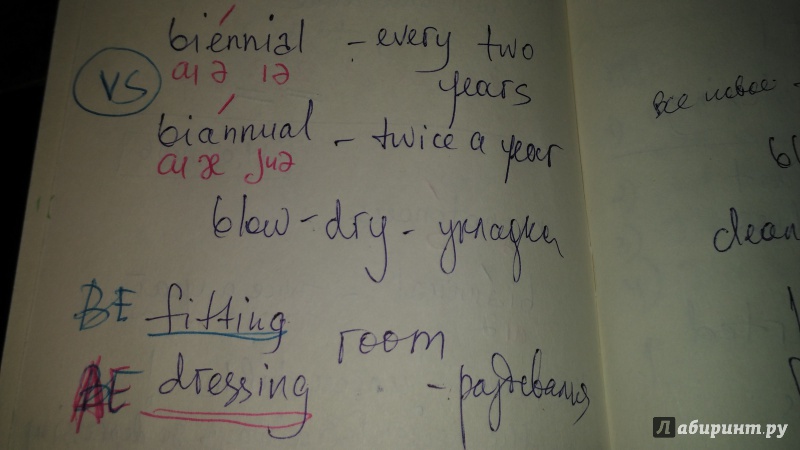 biennial - every two
VS
aɪ ə ɪə
years
biannual - twice a year
aɪ æ juə
blow-dry - укладка
BE fitting
room
AE dressing - раздевалка
все новое -
clean
Лабиринт.ру